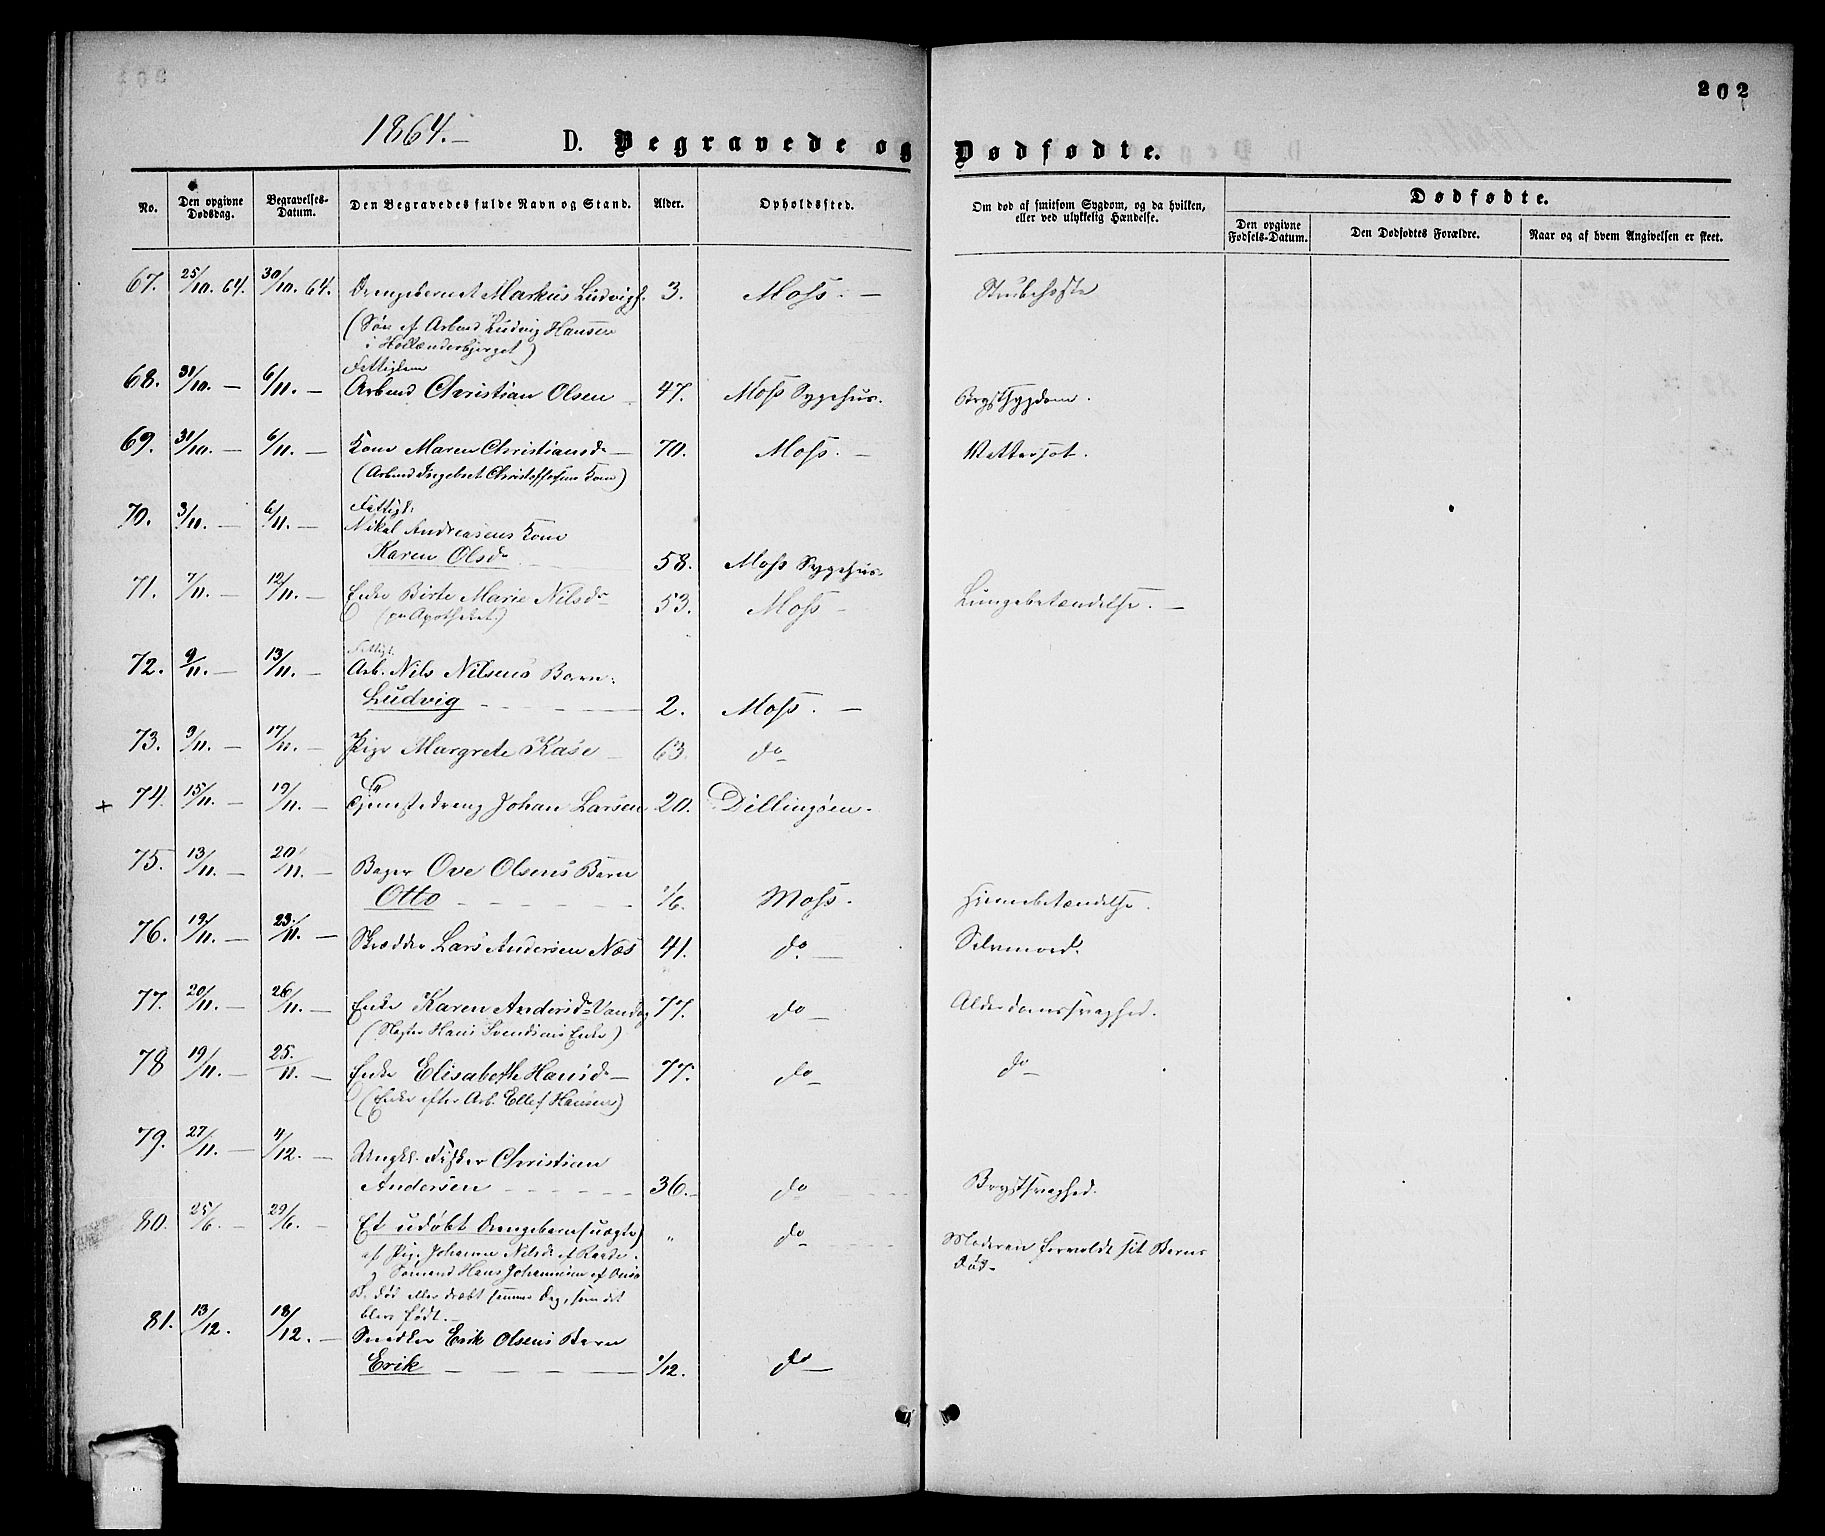 202
1864.-
D. Begravede og Dødfødte.
No. Den opgivne Dødsdag. Begravelses-Datum. Den Begravedes fulde Navn og Stand. Alder. Opholdssted. Om død af smitsom Sygdom, og da hvilken, eller ved ulykkelig Hændelse.
Dødfødte.
Den opgivne Fødsels-Datum. Den Dødfødtes Forældre. Naar og af hvem Angivelsen er skeet.
67. 25/10. 64. 30/10. 64. Drengebarnet Markus Ludvigs. 3. Moss. — Strubehoste
(Søn af Arbmd Ludvig Hansen
i Hollænderbjerget)
Fattiglem
68. 31/10. — 6/11. — Arbmd Christian Olsen — 47. Moss Sygehus. Brystsygdom.
69. 31/10. — 6/11. — Kone Maren Christiansd. — 70. Moss. — Vattersot.
(Arbmd Ingebret Christoffersens Kone)
Fattigl.
70. 3/11. — 6/11. — Nikal Andreasens Kone
Karen Olsd. 58. Moss Sygehus.
71. 7/11. — 12/11. — Enke Birte Marie Nilsd. 53. Moss — Lungebetændelse. —
(paa Apotheket)
Fattigl.
72. 9/11. — 13/11. — Arb. Nils Nilsens Barn.
Ludvig — 2. Moss. —
73. 9/11. — 17/11. — Pige Margrete Kase — 63. do
+ 74. 15/11. — 19/11. — Tjenestedreng Johan Larsen 20. Dillingøen.
75. 13/11. — 20/11. — Bager Ove Olsens Barn
Otto — 1/6. Moss. Hjernebetændelse.
76. 19/11. — 23/11. — Skrædder Lars Andersen Næs 41. do — Selvmord.
77. 20/11. — 26/11. — Enke Karen Andersd. 77. do — Alderdomssvaghed.
(Hans Svendsens Enke)
78 19/11. — 25/11. — Enke Elisabethe Hansd. — 77. do — do —
(Enke efter Arb. Ellef Hansen)
79. 27/11. — 4/12. — Ungk. Fisker Christian
Andersen — 36. — do Brystsvaghed.
80. 25/6. — 29/6. — Et udøbt Drengebarn (uægte) „ do Moderen forvoldt sit Barns
Død —
af Pige Johanne Nilsd. af Raade
og Sømand Hans Johannesen af
B. død eller dræbt samme Dag, som det
blev født. —
81. 13/12. 18/12. — Snedker Erik Olsens Barn
Erik — 1/12. do —